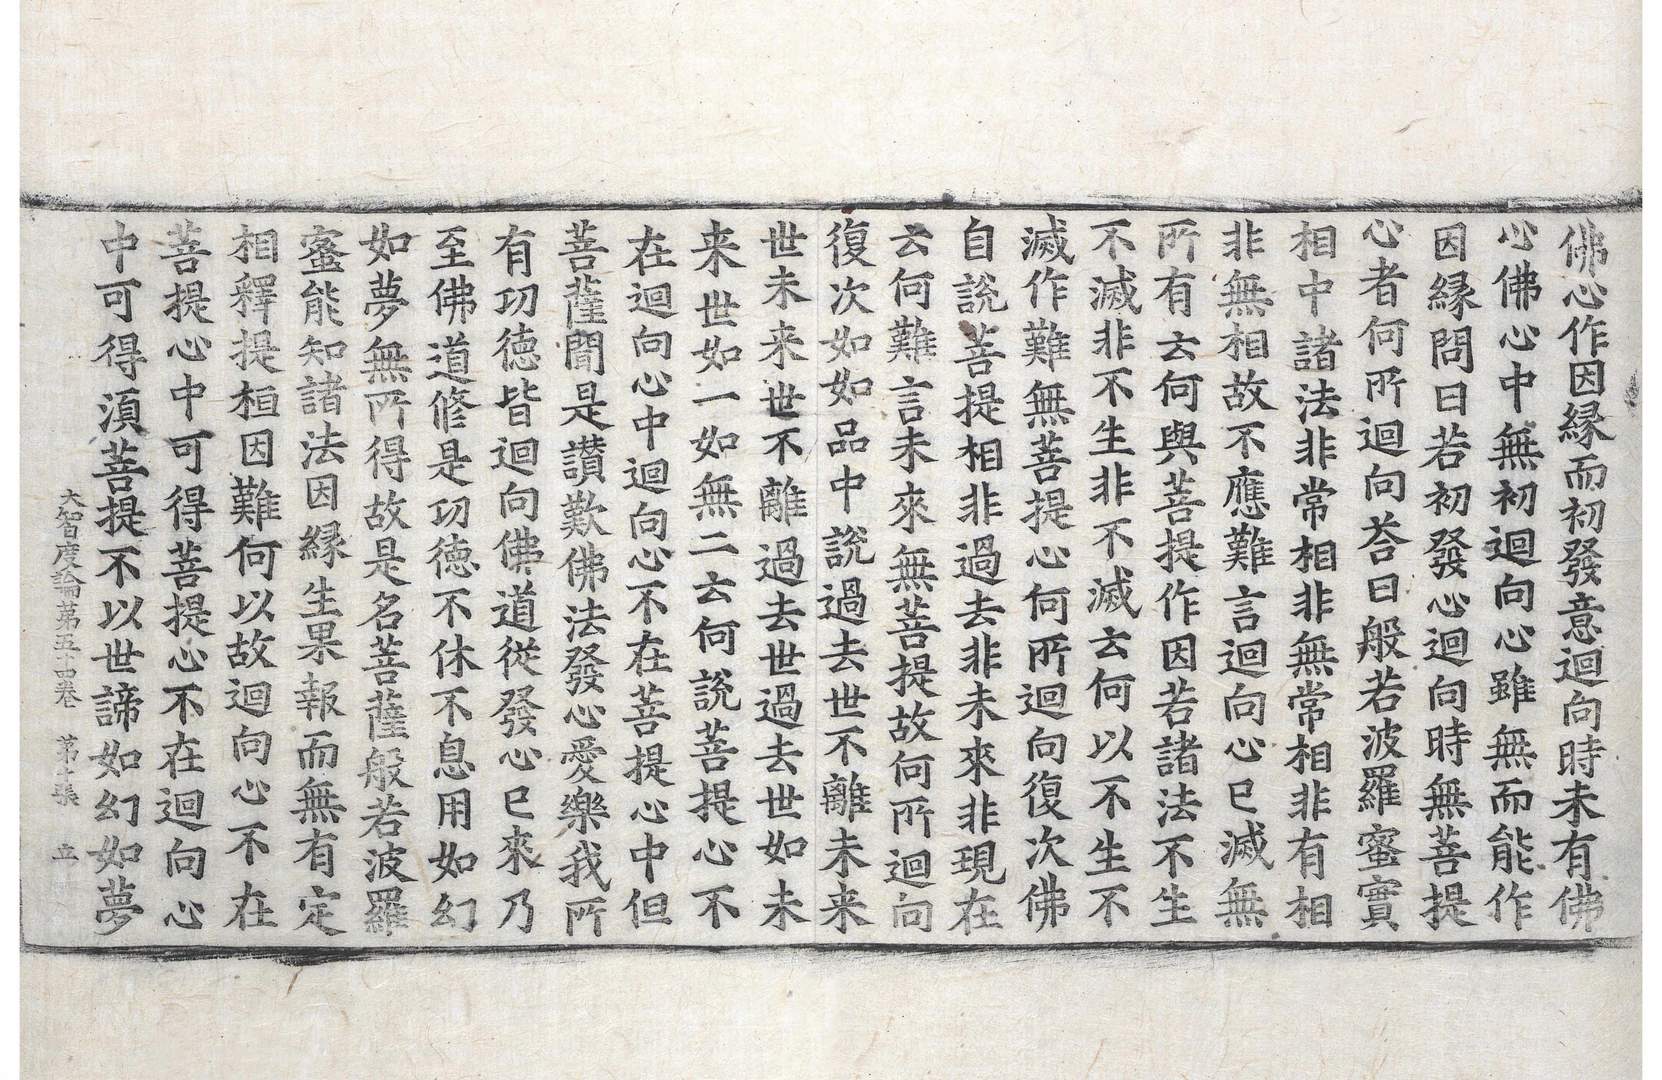 佛心作因縁而初發意迴向時未有佛
心佛心中無初迴向心雖無而能作
因縁問曰若初發心迴向時無菩提
心者何所迴向荅曰般若波羅蜜實
相中諸法非常相非無常相非有相
非無相故不應難言迴向心已滅無
所有云何與菩提作因若諸法不生
不滅非不生非不滅云何以不生不
滅作難無菩提心何所迴向復次佛
自說菩提相非過去非未來非現在
云何難言未來無菩提故何所迴向
復次如如品中說過去世不離未来
世未来世不離過去世過去世如未
来世如一如無二云何說菩提心不
在迴向心中迴向心不在菩提心中但
菩薩聞是讃歎佛法發心愛樂我所
有功德皆迴向佛道從發心已來乃
至佛道修是功德不休不息用如幻
如夢無所得故是名菩薩般若波羅
蜜能知諸法因縁生果報而無有定
相釋提桓因難何以故迴向心不在
菩提心中可得菩提心不在迴向心
中可得湏菩提不以世諦如幻如夢
大智度論苐五十四卷 苐十張